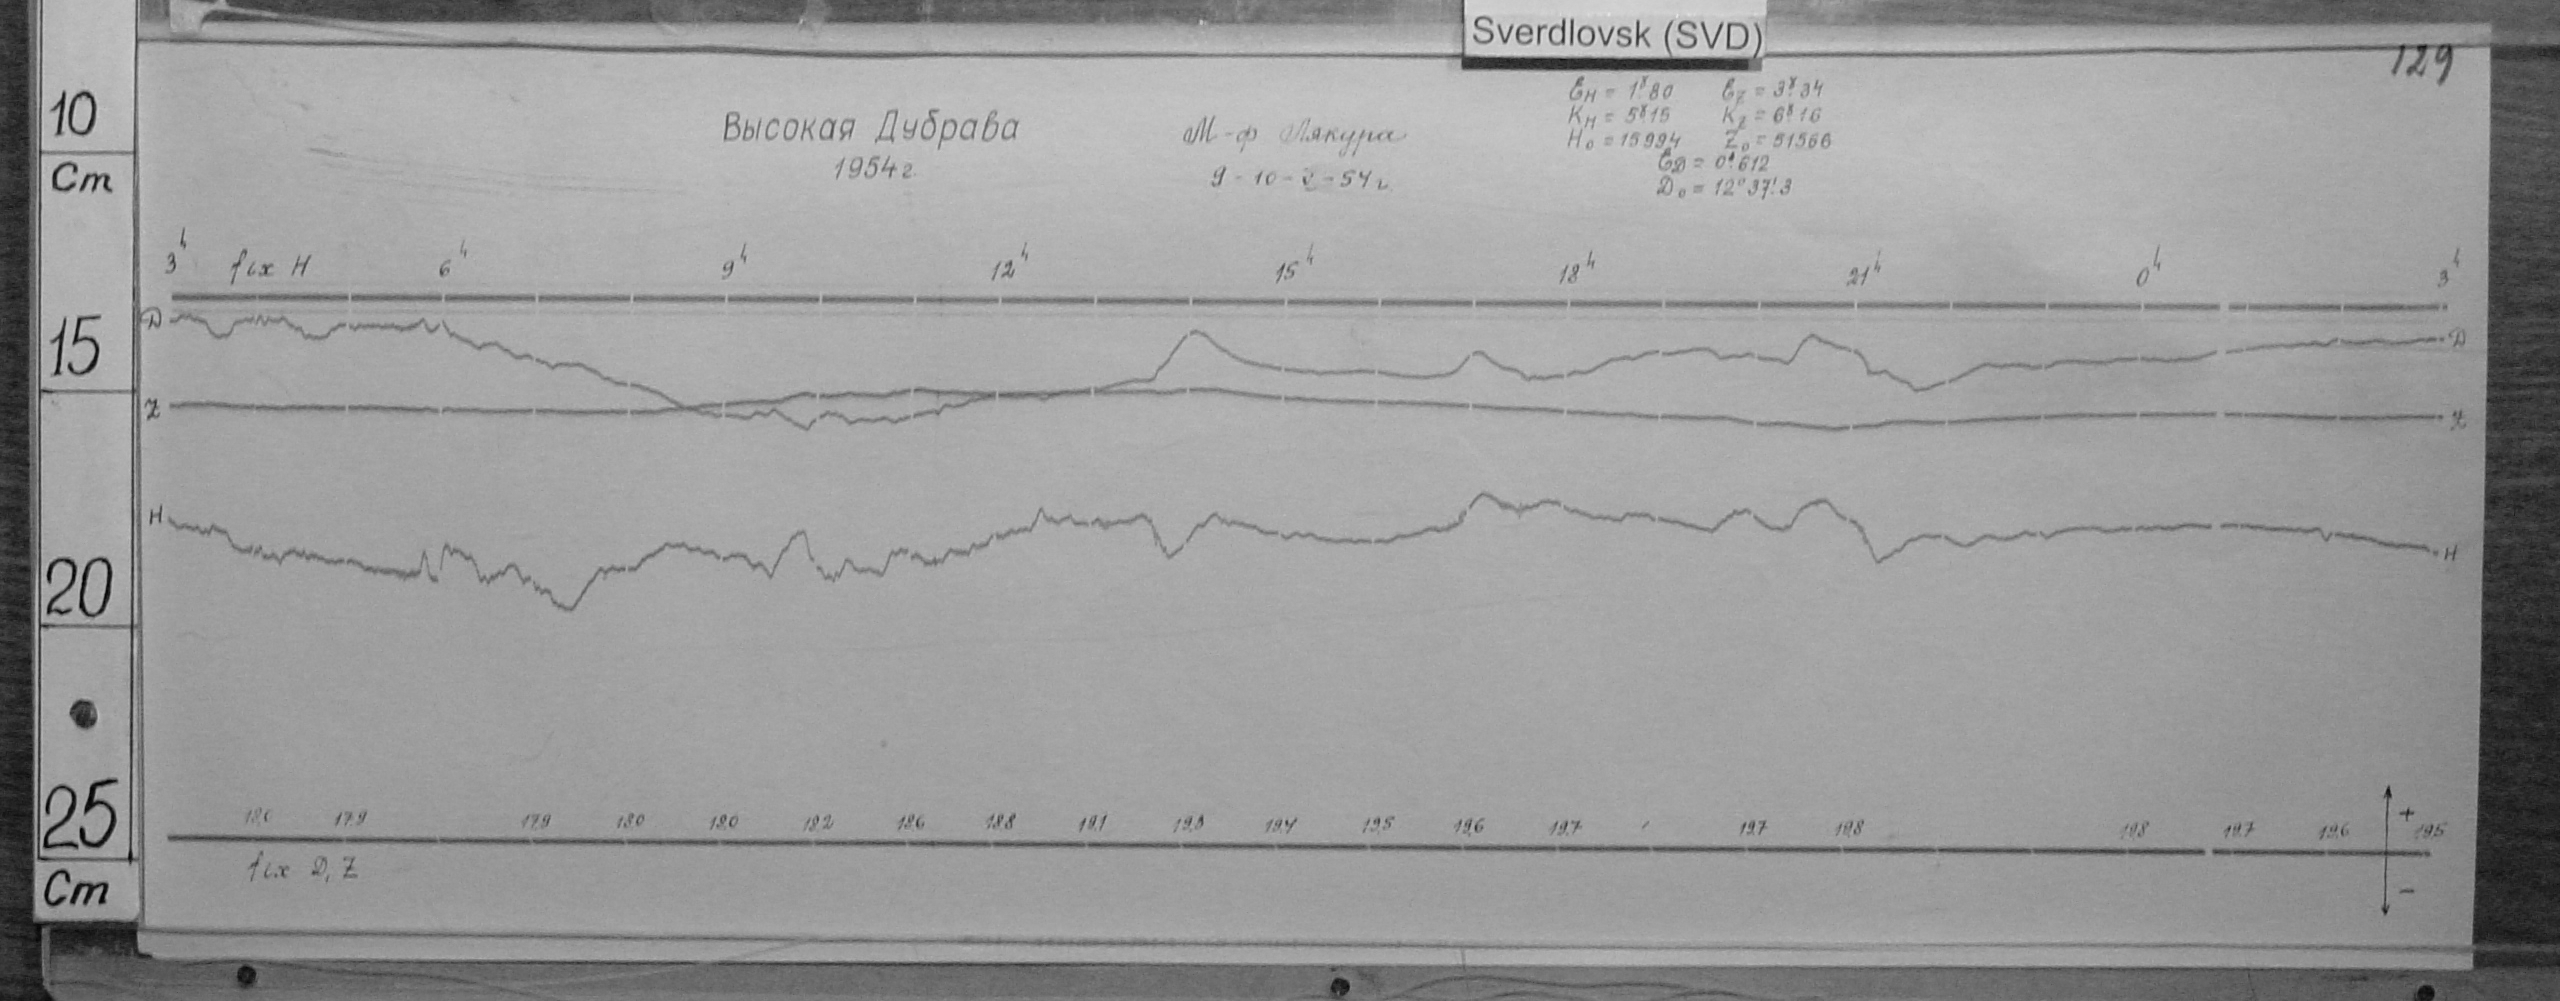 Sverdlovsk (SVD)
129
10
Cm
15
20
25
Cm
Высокая Дубрава
1954г.
М-ф Лякура
9-10-V-54г.
Ɛн = 1ˠ.80 Ɛz = 3ˠ.34
Kн = 5ˠ.15 Kz = 6ˠ.16
H₀ = 15994 Z₀ = 51566
ƐD = 0'.612
D₀ = 12°37'.3
3ʰ fix H 6ʰ 9ʰ 12ʰ 15ʰ 18ʰ 21ʰ 0ʰ 3ʰ
D D
Z Z
H H
17.9 17.9 18.0 18.0 18.2 18.6 18.8 19.1 19.3 19.4 19.5 19.6 19.7 19.7 19.8 19.8 19.7 19.6 19.5
+
fix D, Z
-